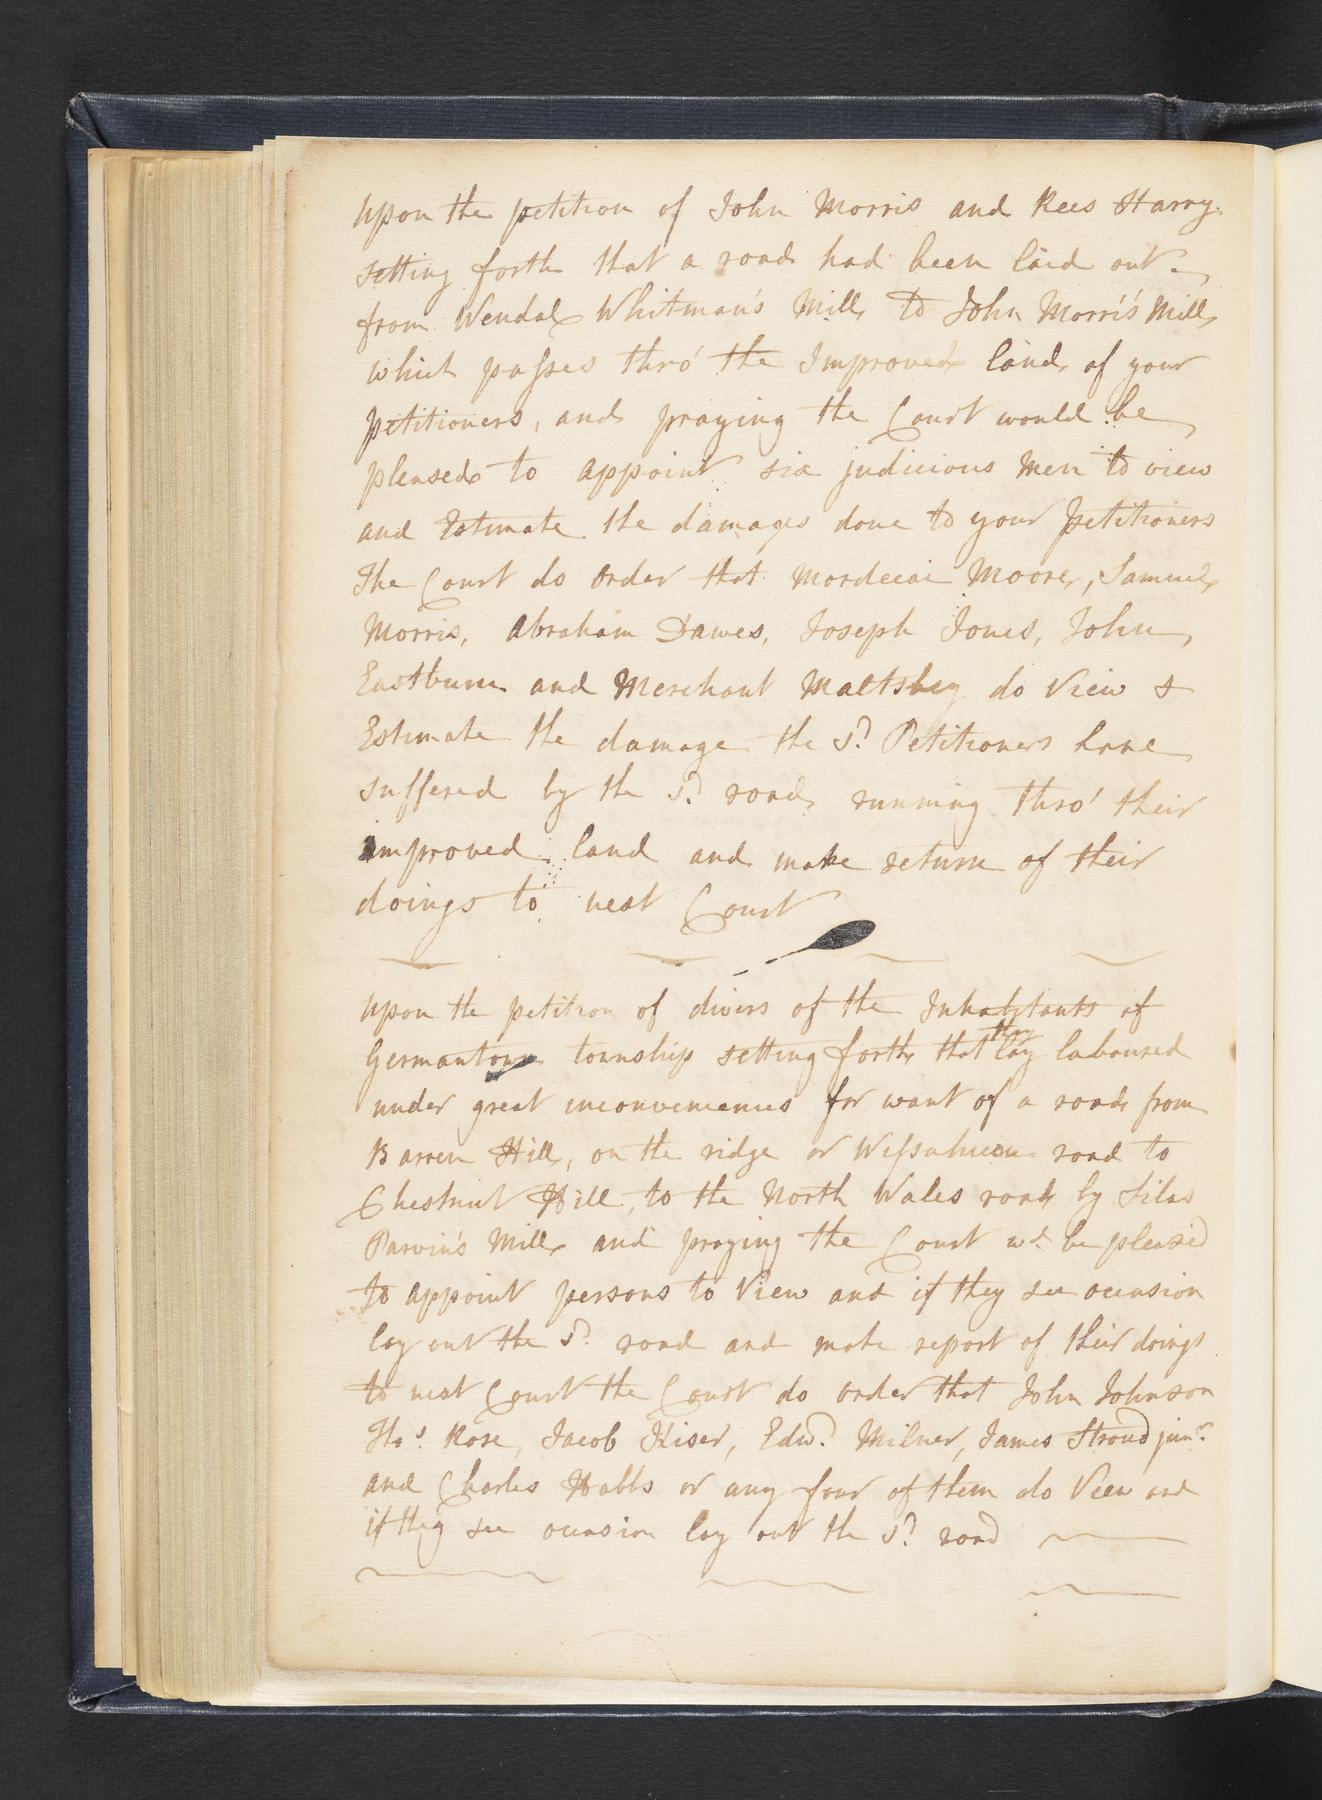 Upon the petition of John Morris and Rees Harry
setting forth that a road had been laid out
from Wendal Whitman's Mill to John Morris's Mill
which passes thro' the Improved land of your
petitioners, and praying the Court would be
pleased to appoint six judicious Men to view
and Estimate the damages done to your Petitioners
The Court do order that Mordecai Moore, Samuel
Morris, Abraham Dawes, Joseph Jones, John
Eastburn and Merchant Maltsby do View &
Estimate the damage the sd. Petitioners have
suffered by the sd. road running thro' their
improved land and make return of their
doings to next Court
Upon the petition of divers of the Inhabitants of
Germantown township setting forth that they lay laboured
under great inconveniencies for want of a road from
Barren Hill, on the ridge or Wissahicon road to
Chestnut Hill, to the North Wales road by Silas
Parvin's Mill and praying the Court wd. be pleased
to appoint persons to View and if they see occasion
lay out the sd. road and make report of their doings
to next Court the Court do order that John Johnson
Thos. Rose, Jacob Kiser, Edwd. Milner, James Stroud junr.
and Charles Hubbs or any four of them do View and
if they see occasion lay out the sd. road